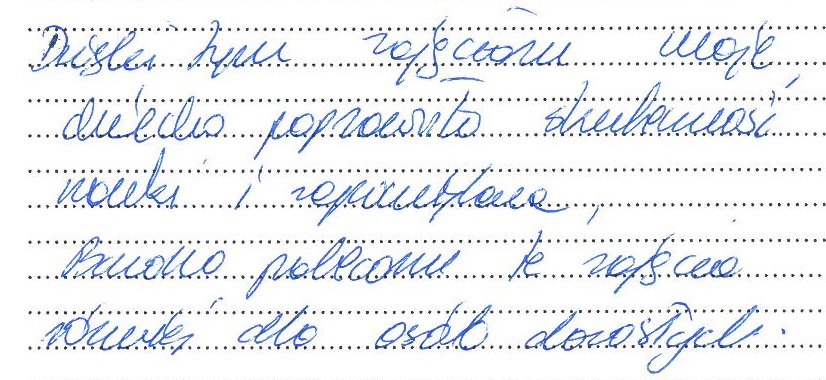 Dzięki tym zajęciom moje
dziecko poprawiło skuteczność
nauki i zapamiętania,
Bardzo polecam te zajęcia
również dla osób dorosłych.